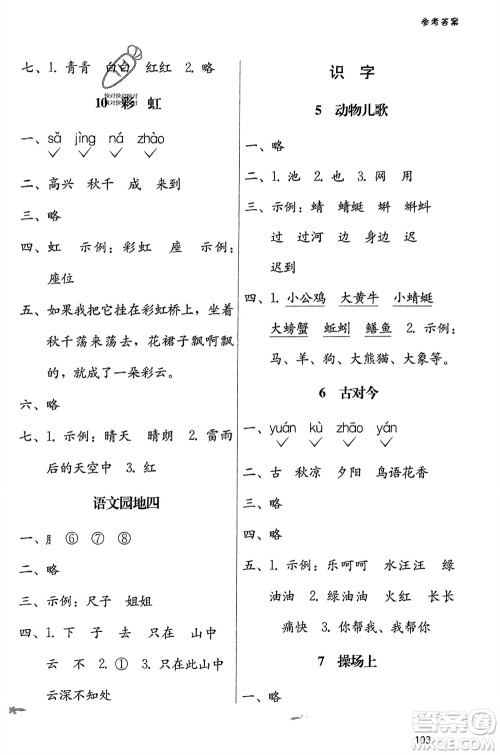 参考答案
七、1. 青青 白白 红红 2. 略
快对快对快对
快对快对快对
10 彩 虹
一、sǎ jìng ná zhào
二、高兴 秋千 成 来到
三、略
四、虹 示例：彩虹 座 示例：
座位
五、如果我把它挂在彩虹桥上，坐着
秋千荡来荡去，花裙子飘啊飘
的，就成了一朵彩云。
六、略
七、1. 示例：晴天 晴朗 2. 雷雨
后的天空中 3. 红
语文园地四
一、⺝ ⑥ ⑦ ⑧
二、略
三、示例：尺子 姐姐
四、1. 下 子 去 只在 山中
云 不 2. ① 只在此山中
云深不知处
识 字
5 动物儿歌
一、略
二、1. 池 2. 也 3. 网 用
三、示例：蜻 蜻蜓 蝌 蝌蚪
过 过河 身 身体 迟
迟到
四、1. 小公鸡 大黄牛 小蜻蜓
大螃蟹 蚯蚓 鳝鱼 2. 示例：
马、羊、狗、大熊猫、大象等。
6 古对今
一、yuán kù zhāo yán
二、古 秋凉 夕阳 鸟语花香
三、略
四、略
五、1. 示例：乐呵呵 水汪汪 绿
油油 2. 示例：火红 长长
痛快 3. 示例：你帮我、我帮你
7 操场上
一、略
103